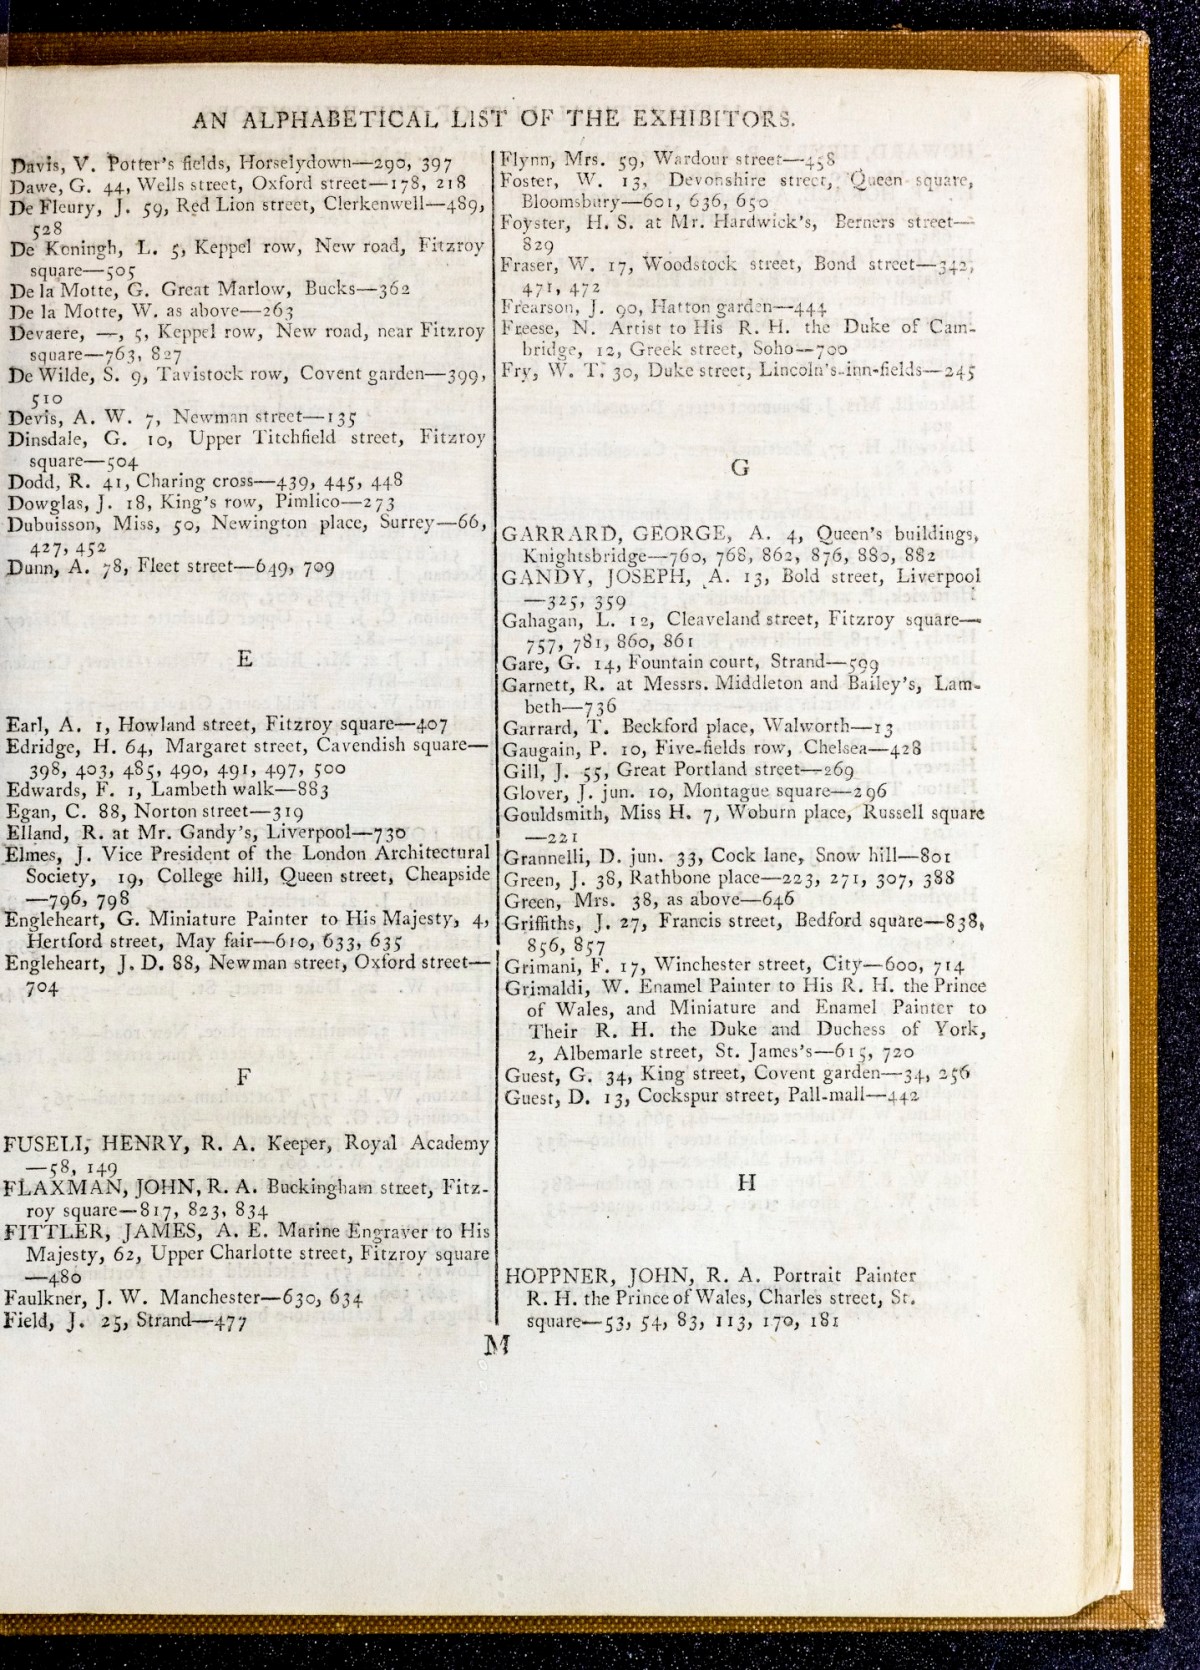 AN ALPHABETICAL LIST OF THE EXHIBITORS.
Davis, V. Potter's fields, Horselydown—290, 397
Dawe, G. 44, Wells street, Oxford street—178, 218
De Fleury, J. 59, Red Lion street, Clerkenwell—489,
528
De Koningh, L. 5, Keppel row, New road, Fitzroy
square—505
De la Motte, G. Great Marlow, Bucks—362
De la Motte, W. as above—263
Devaere, —, 5, Keppel row, New road, near Fitzroy
square—763, 827
De Wilde, S. 9, Tavistock row, Covent garden—399,
510
Devis, A. W. 7, Newman street—135
Dinsdale, G. 10, Upper Titchfield street, Fitzroy
square—504
Dodd, R. 41, Charing cross—439, 445, 448
Dowglas, J. 18, King's row, Pimlico—273
Dubuisson, Miss, 50, Newington place, Surrey—66,
427, 452
Dunn, A. 78, Fleet street—649, 709
E
Earl, A. 1, Howland street, Fitzroy square—407
Edridge, H. 64, Margaret street, Cavendish square—
398, 403, 485, 490, 491, 497, 500
Edwards, F. 1, Lambeth walk—883
Egan, C. 88, Norton street—319
Elland, R. at Mr. Gandy's, Liverpool—730
Elmes, J. Vice President of the London Architectural
Society, 19, College hill, Queen street, Cheapside
—796, 798
Engleheart, G. Miniature Painter to His Majesty, 4,
Hertford street, May fair—610, 633, 635
Engleheart, J. D. 88, Newman street, Oxford street—
704
F
FUSELI, HENRY, R. A. Keeper, Royal Academy
—58, 149
FLAXMAN, JOHN, R. A. Buckingham street, Fitz-
roy square—817, 823, 834
FITTLER, JAMES, A. E. Marine Engraver to His
Majesty, 62, Upper Charlotte street, Fitzroy square
—480
Faulkner, J. W. Manchester—630, 634
Field, J. 25, Strand—477
Flynn, Mrs. 59, Wardour street—458
Foster, W. 13, Devonshire street, Queen square,
Bloomsbury—601, 636, 650
Foyster, H. S. at Mr. Hardwick's, Berners street—
829
Fraser, W. 17, Woodstock street, Bond street—342,
471, 472
Frearson, J. 90, Hatton garden—444
Freese, N. Artist to His R. H. the Duke of Cam-
bridge, 12, Greek street, Soho—700
Fry, W. T. 30, Duke street, Lincoln's-inn-fields—245
G
GARRARD, GEORGE, A. 4, Queen's buildings,
Knightsbridge—760, 768, 862, 876, 880, 882
GANDY, JOSEPH, A. 13, Bold street, Liverpool
—325, 359
Gahagan, L. 12, Cleaveland street, Fitzroy square—
757, 781, 860, 861
Gare, G. 14, Fountain court, Strand—599
Garnett, R. at Messrs. Middleton and Bailey's, Lam-
beth—736
Garrard, T. Beckford place, Walworth—13
Gaugain, P. 10, Five-fields row, Chelsea—428
Gill, J. 55, Great Portland street—269
Glover, J. jun. 10, Montague square—296
Gouldsmith, Miss H. 7, Woburn place, Russell square
—221
Grannelli, D. jun. 33, Cock lane, Snow hill—801
Green, J. 38, Rathbone place—223, 271, 307, 388
Green, Mrs. 38, as above—646
Griffiths, J. 27, Francis street, Bedford square—838,
856, 857
Grimani, F. 17, Winchester street, City—600, 714
Grimaldi, W. Enamel Painter to His R. H. the Prince
of Wales, and Miniature and Enamel Painter to
Their R. H. the Duke and Duchess of York,
2, Albemarle street, St. James's—615, 720
Guest, G. 34, King street, Covent garden—34, 256
Guest, D. 13, Cockspur street, Pall-mall—442
H
HOPPNER, JOHN, R. A. Portrait Painter
R. H. the Prince of Wales, Charles street, St.
square—53, 54, 83, 113, 170, 181
M